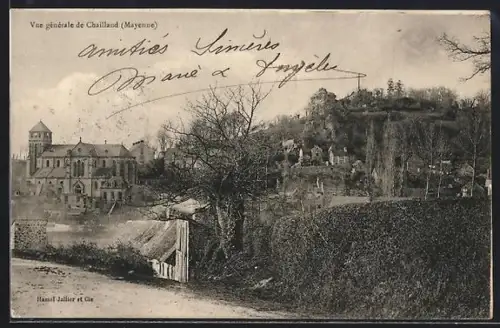 Vue générale de Chailland (Mayenne)
amitiés Simères
Marié & Angèles
Hamel-Jallier et Cie